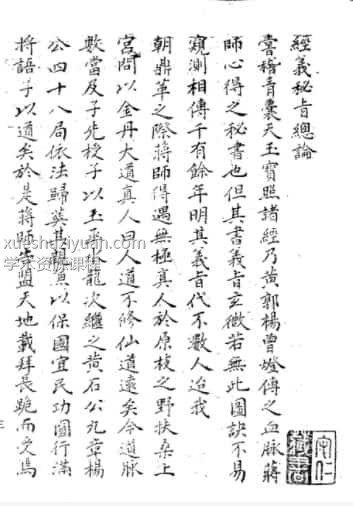 經義秘旨總論
嘗稽青囊天玉寶照諸經乃黃郭楊曾燈傳之血脈蔣
師心得之秘書也但其書義旨玄微若無此圖訣不易
窺測相傳千有餘年明其義旨代不數人迨我
朝鼎革之際蔣師得遇無極真人於原之野扶桑上
宮問以金丹大道真人曰人道不修仙道遠矣今道脈
數當及子先授子以玉函龍次繼之黃石公九章楊
公四十八局依法歸葬其以保國宜民功圓行滿
將語子以道矣於是蔣師盟天地載拜長跪而受焉
守仁
藏書